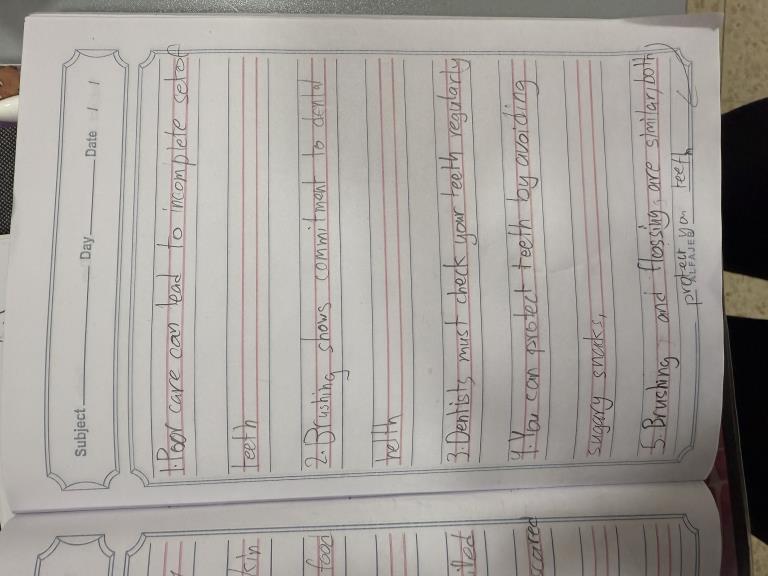 Subject Day Date / /
1. Poor care can lead to incomplete set of
teeth
2. Brushing shows commitment to dental
helth
3. Dentists must check your teeth regularly
4. You can protect teeth by avoiding
sugary snaks,
5. Brushing and flossing are similar, both
protect you teeth
ALFAJER
kin
food
iled
scared